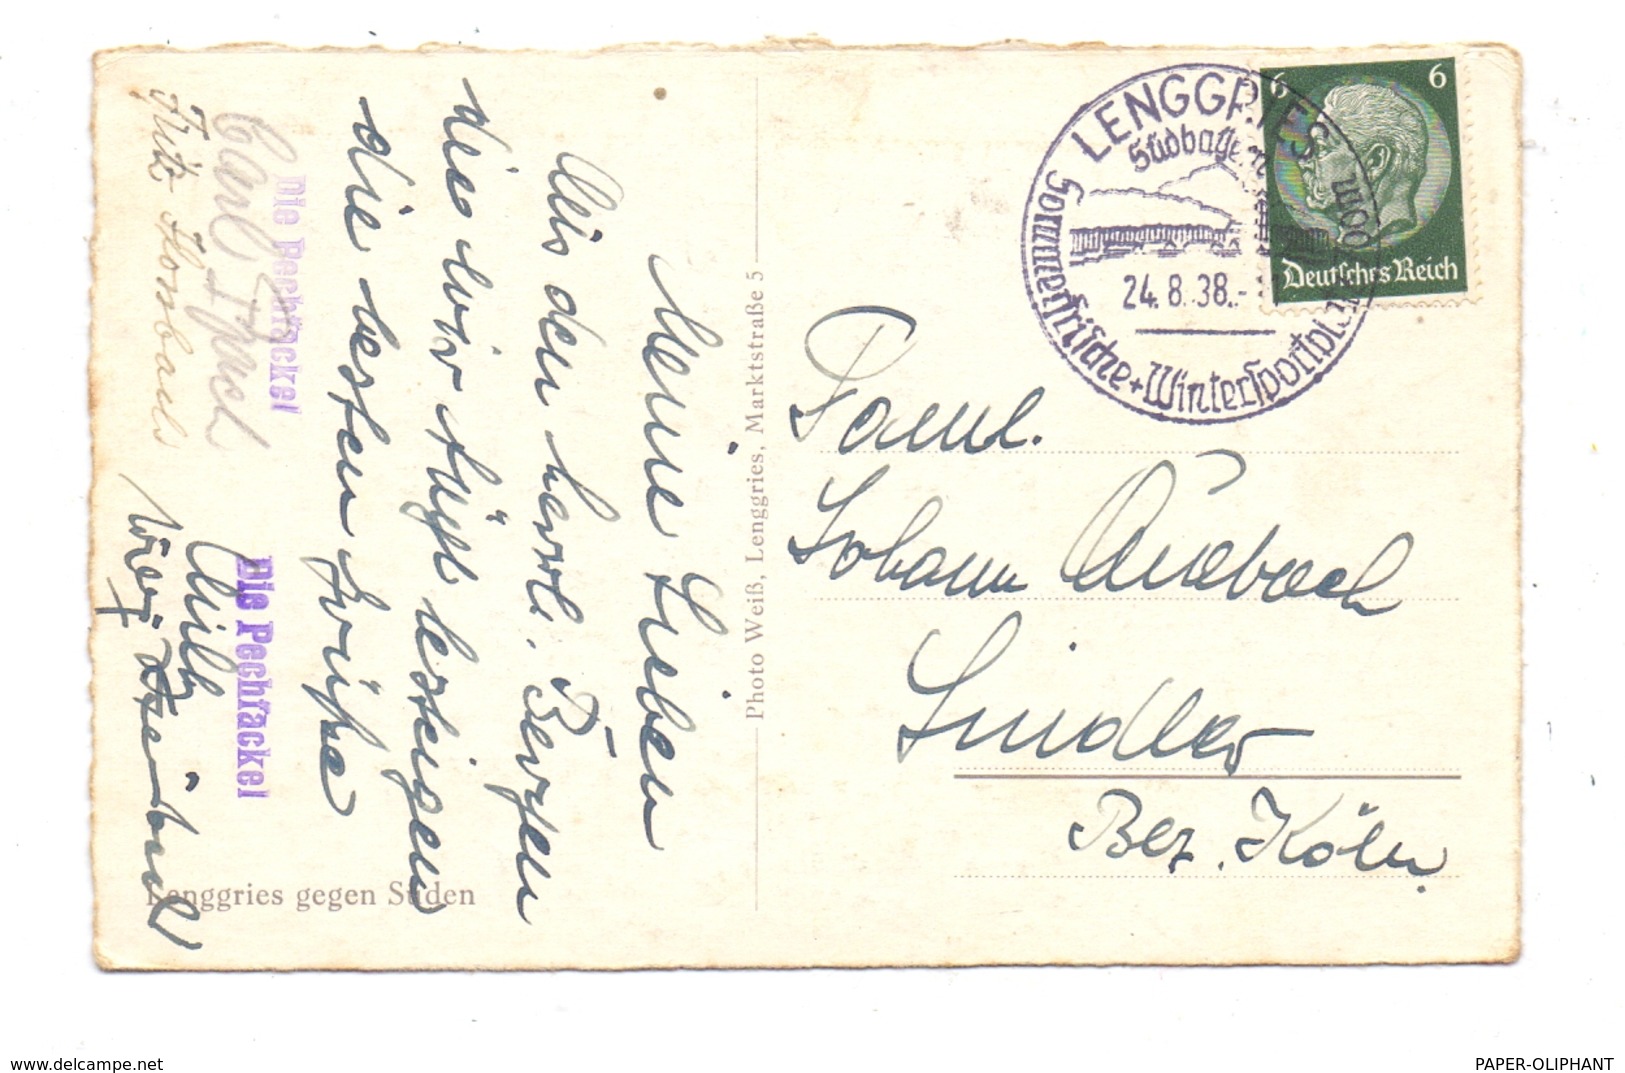 Meine Lieben
Aus den herrl. Bergen
die wir tägl. besteigen
die besten Grüße
Die Pechfackel
Die Pechfackel
Carl
Fritz
Willy
Lenggries gegen Süden
Photo Weiß, Lenggries, Marktstraße 5
LENGGRIES
Südbayern
700m
24.8.38.-
Sommerfrische + Wintersportplatz
6 6
Deutsches Reich
Faml.
Johann Auerbach
Lindlar
Bez. Köln.
www.delcampe.net
PAPER-OLIPHANT